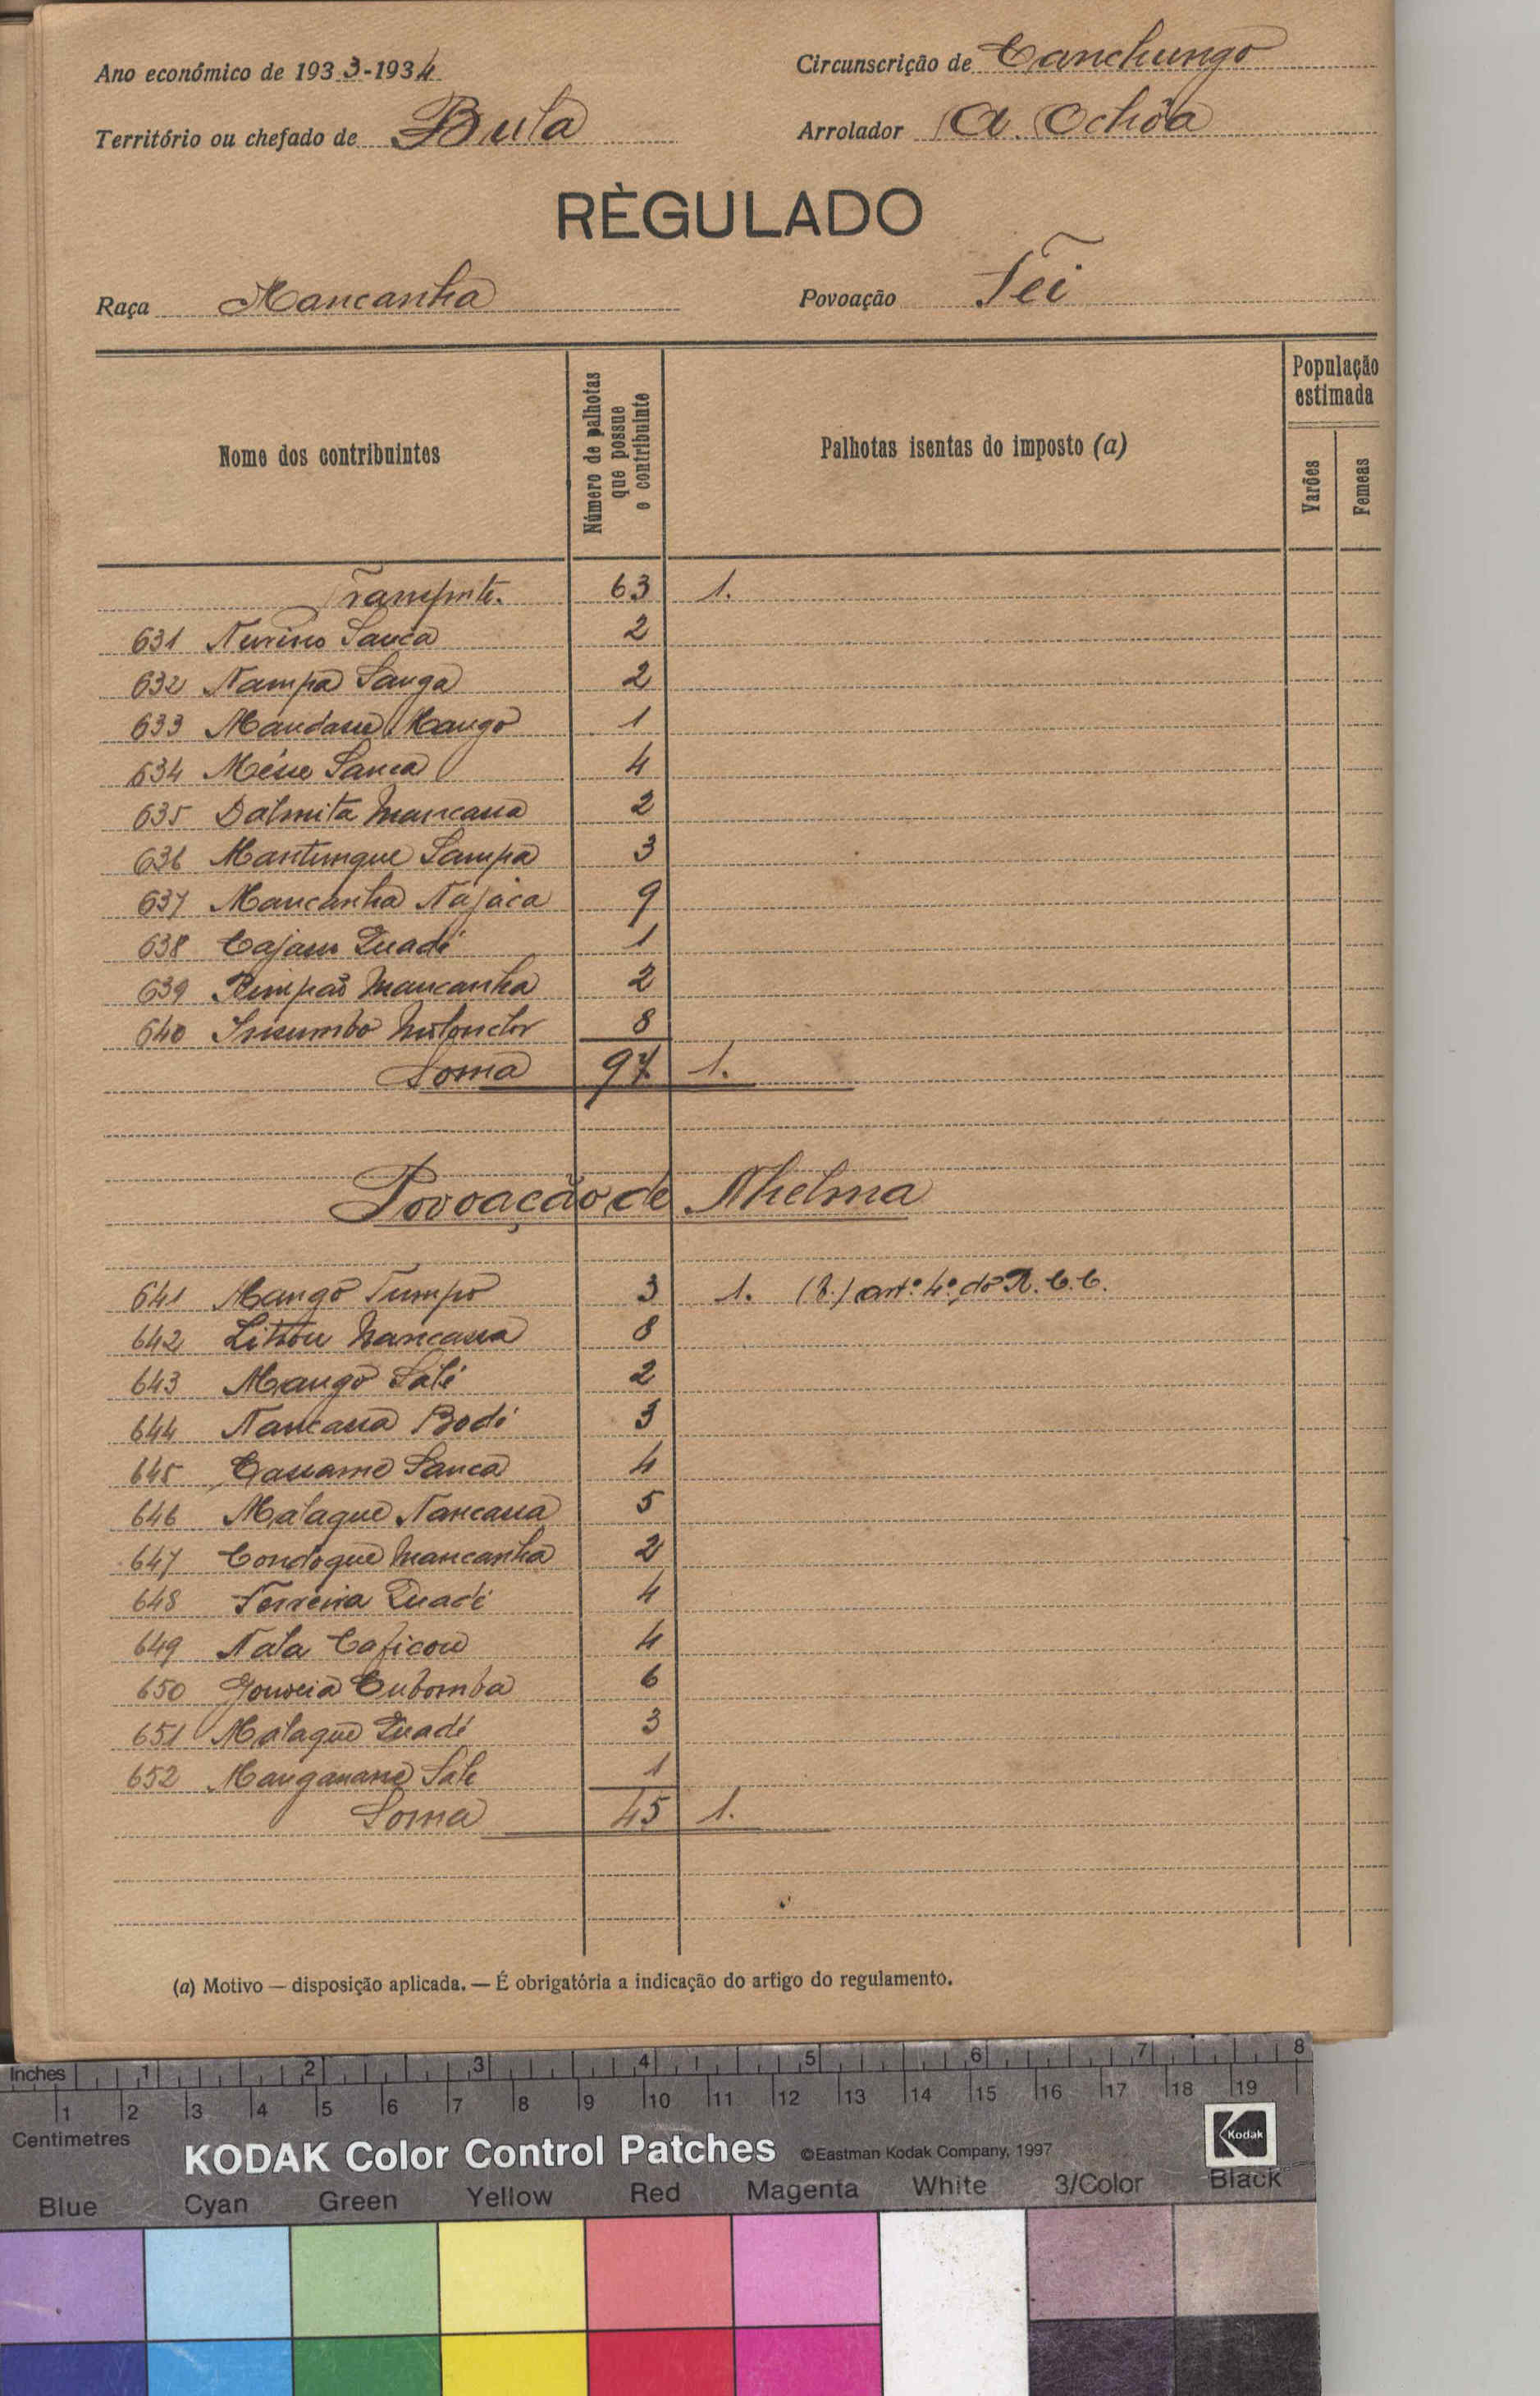 Ano económico de 1933-1934
Circunscrição de Canchungo
Território ou chefado de Bula
Arrolador A. Ochôa
RÈGULADO
Raça Mancanha
Povoação Tei
Nome dos contribuintes
Número de palhotas que possue o contribuinte
Palhotas isentas do imposto (a)
População estimada
Varões
Femeas
Transporte. 63 1.
631 Sanca 2
632 Nampa Sanga 2
633 Mango 1
634 Sanca 4
635 Dalmita Mancana 2
636 Mantungue Sampa 3
637 Mancanha Najaca 9
638 Quadé 1
639 Mancanha 2
640 8
Soma 97 1.
Povoação de Nhelma
641 Mango Tumpo 3 1. art.º 4.º do R. C. C.
642 Nancassa 8
643 Mango Salé 2
644 Nancassa Bodé 3
645 Cassame Sanca 4
646 Malague Nancassa 5
647 Condogue Mancanha 2
648 Ferreira Quadé 4
649 Nala Caficou 4
650 Gouveia Cubomba 6
651 Malague Quadé 3
652 Sale 1
Soma 45 1.
(a) Motivo — disposição aplicada. — É obrigatória a indicação do artigo do regulamento.
Inches 1 2 3 4 5 6 7 8
1 2 3 4 5 6 7 8 9 10 11 12 13 14 15 16 17 18 19
Centimetres
KODAK Color Control Patches ©Eastman Kodak Company, 1997 Kodak
Blue Cyan Green Yellow Red Magenta White 3/Color Black